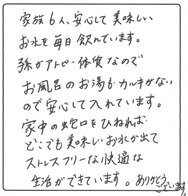 家族6人、安心して美味しい
お水を毎日飲んでいます。
孫がアトピー体質なので
お風呂のお湯もカルキがない
ので安心して入れています。
家中の蛇口をひねれば
どこでも美味しいお水が出て
ストレスフリーな快適な
生活ができています。ありがとう
ございます。